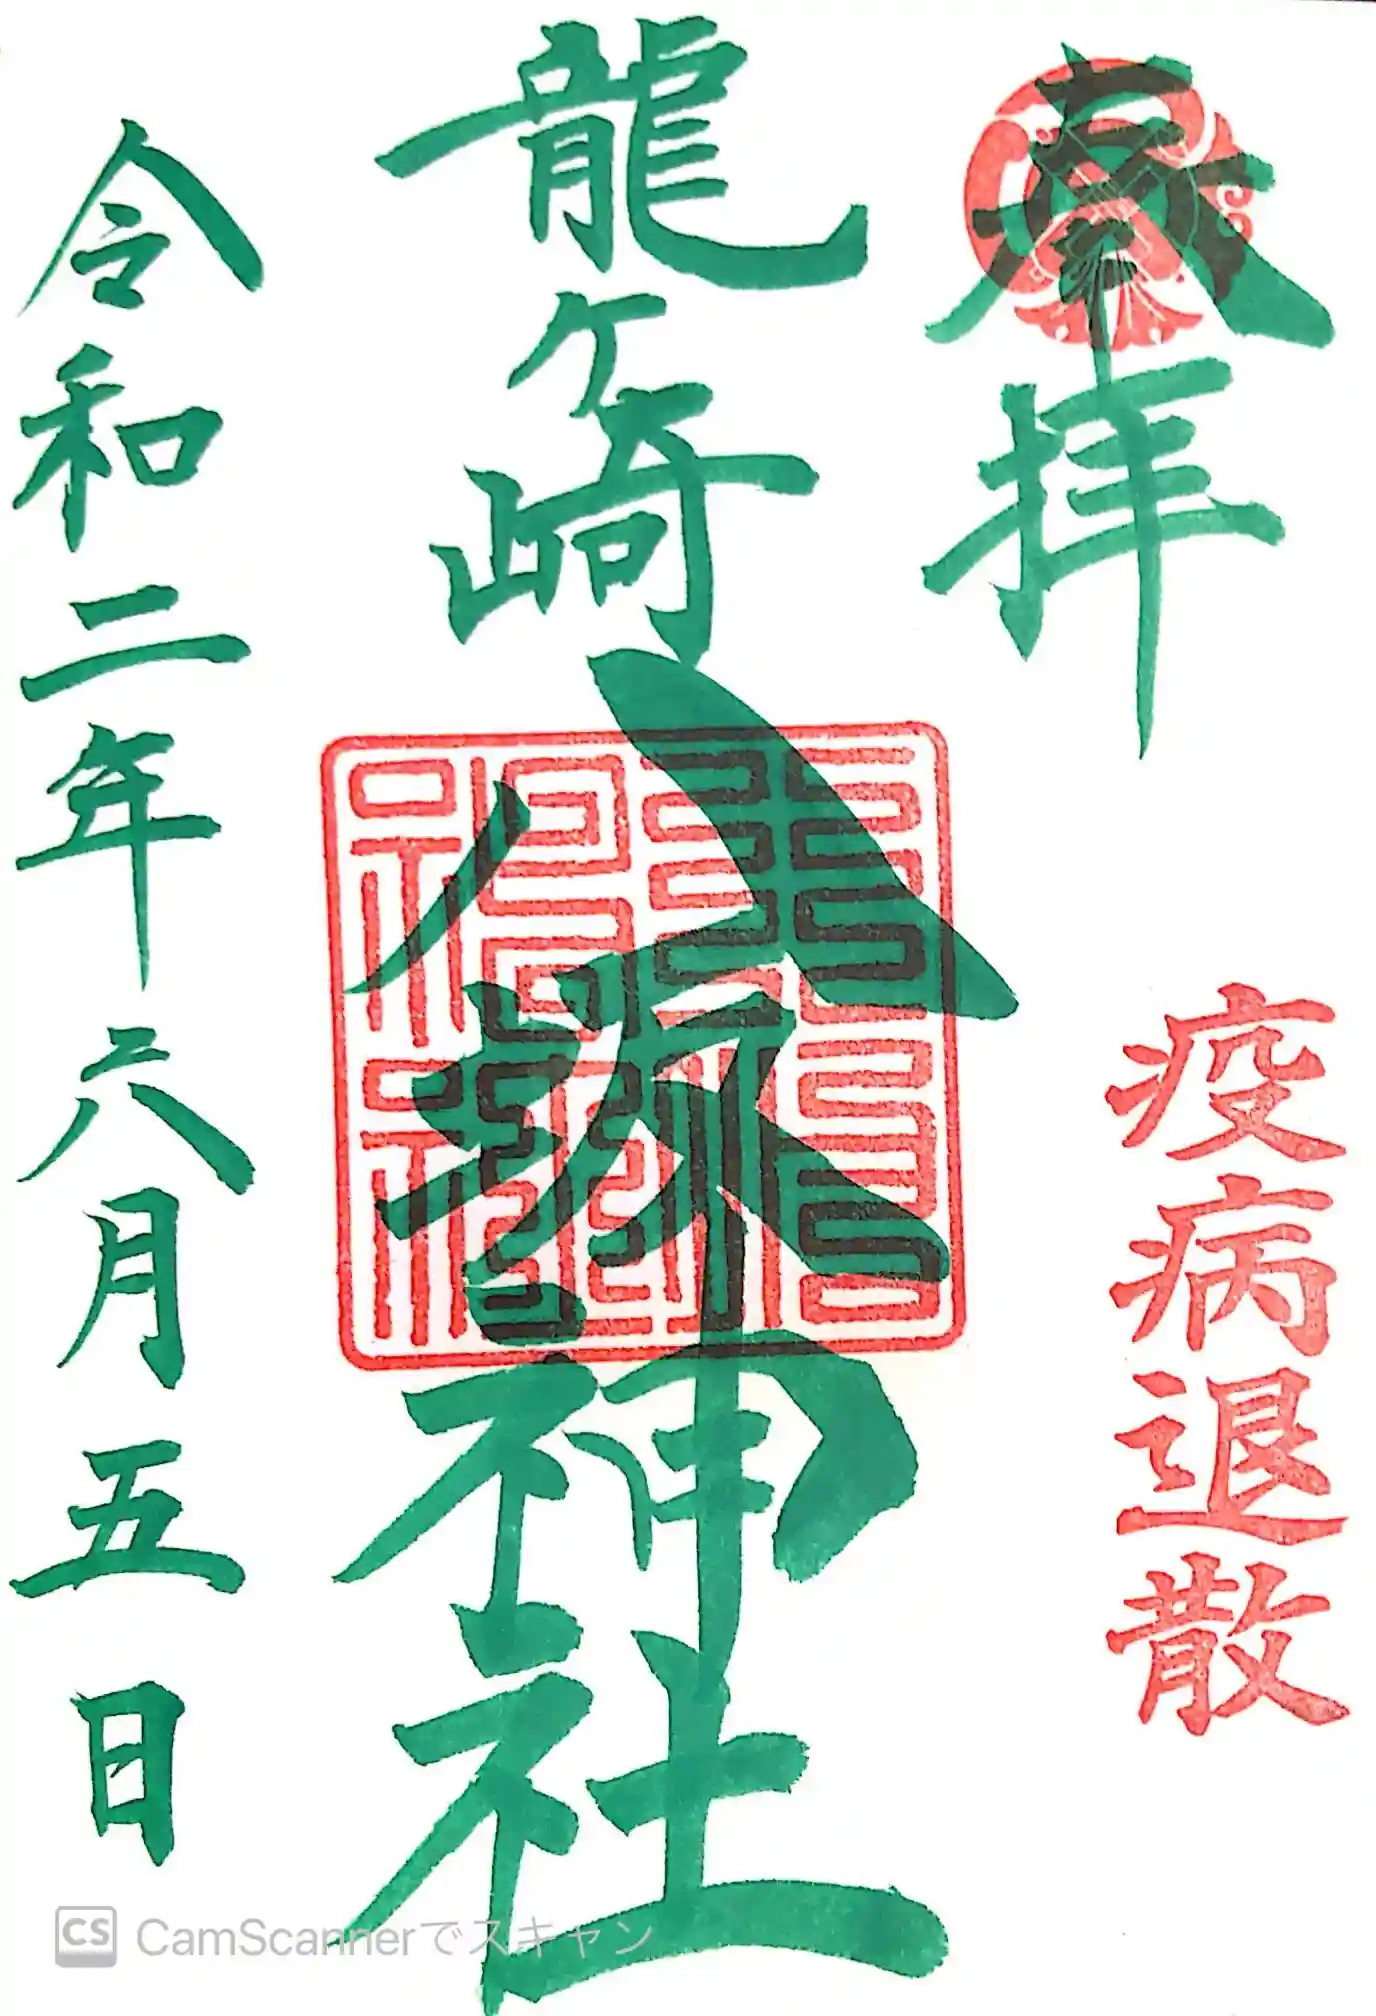 奉拝
疫病退散
龍ヶ崎
八坂神社
令和二年六月五日
CS CamScannerでスキャン